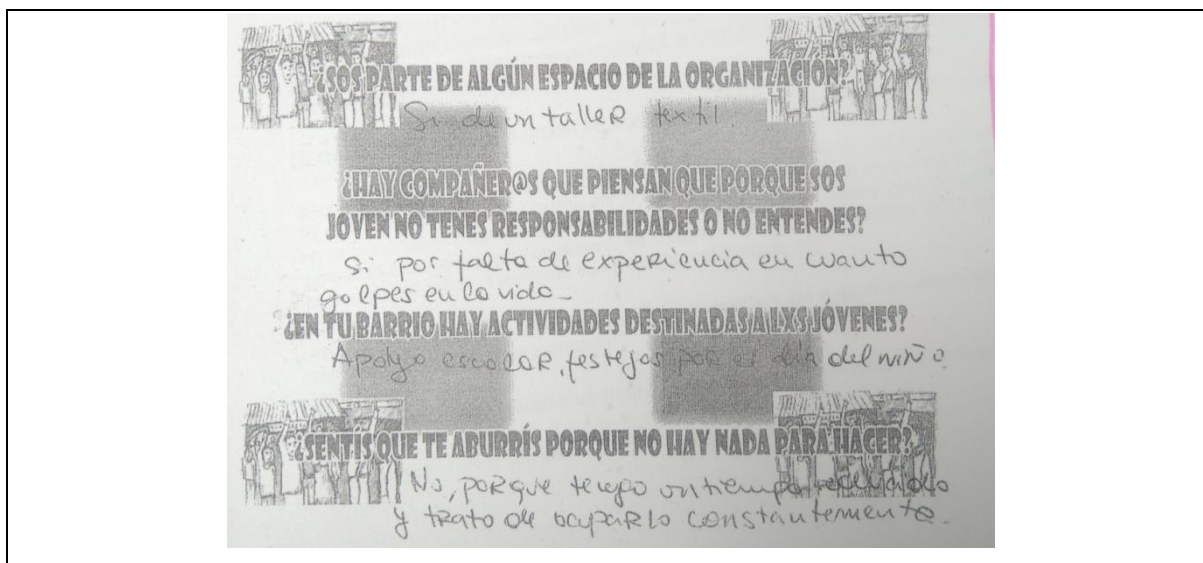 ¿SOS PARTE DE ALGÚN ESPACIO DE LA ORGANIZACIÓN?
Si de un talleR textil.
¿HAY COMPAÑER@S QUE PIENSAN QUE PORQUE SOS
JOVEN NO TENES RESPONSABILIDADES O NO ENTENDES?
Si por falta de expeRiencia en cuanto
golpes en la vida_
¿EN TU BARRIO HAY ACTIVIDADES DESTINADAS A LXS JÓVENES?
Apoyo escolaR, festejos poR el día del niño.
¿SENTIS QUE TE ABURRÍS PORQUE NO HAY NADA PARA HACER?
No, poRque tengo un tiempo
y tRato de ocupaRlo constantemente_